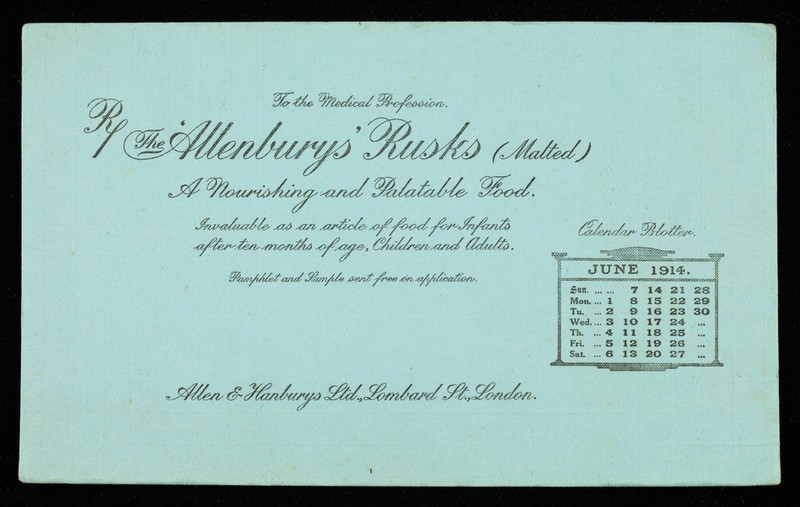 To the Medical Profession.
℞ The 'Allenburys' Rusks (Malted)
A Nourishing and Palatable Food.
Invaluable as an article of food for Infants
after ten months of age, Children and Adults.
Pamphlet and Sample sent free on application.
Calendar Blotter.
JUNE 1914.
Sun. ... ... 7 14 21 28
Mon. ... 1 8 15 22 29
Tu. ... 2 9 16 23 30
Wed. ... 3 10 17 24 ...
Th. ... 4 11 18 25 ...
Fri. ... 5 12 19 26 ...
Sat. ... 6 13 20 27 ...
Allen & Hanburys Ltd., Lombard St., London.